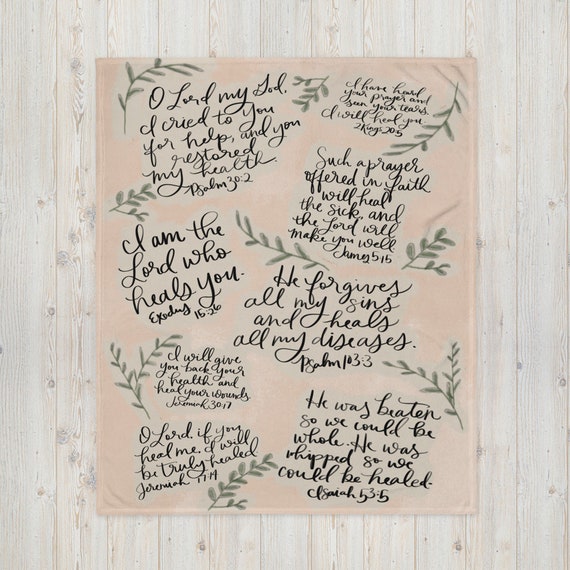 O Lord my God,
I cried to You
for help, and you
restored
my health
Psalm 30:2
I have heard
your prayer and
seen your tears.
I will heal you
2 Kings 20:5
Such a prayer
offered in faith
will heal
the sick, and
the Lord will
make you well.
James 5:15
I am the
Lord who
heals you.
Exodus 15:26
He forgives
all my sins
and heals
all my diseases.
Psalm 103:3
I will give
you back your
health and
heal your wounds
Jeremiah 30:17
He was beaten
so we could be
whole. He was
whipped so we
could be healed.
Isaiah 53:5
O Lord, if you
heal me, I will
be truly healed
Jeremiah 17:14